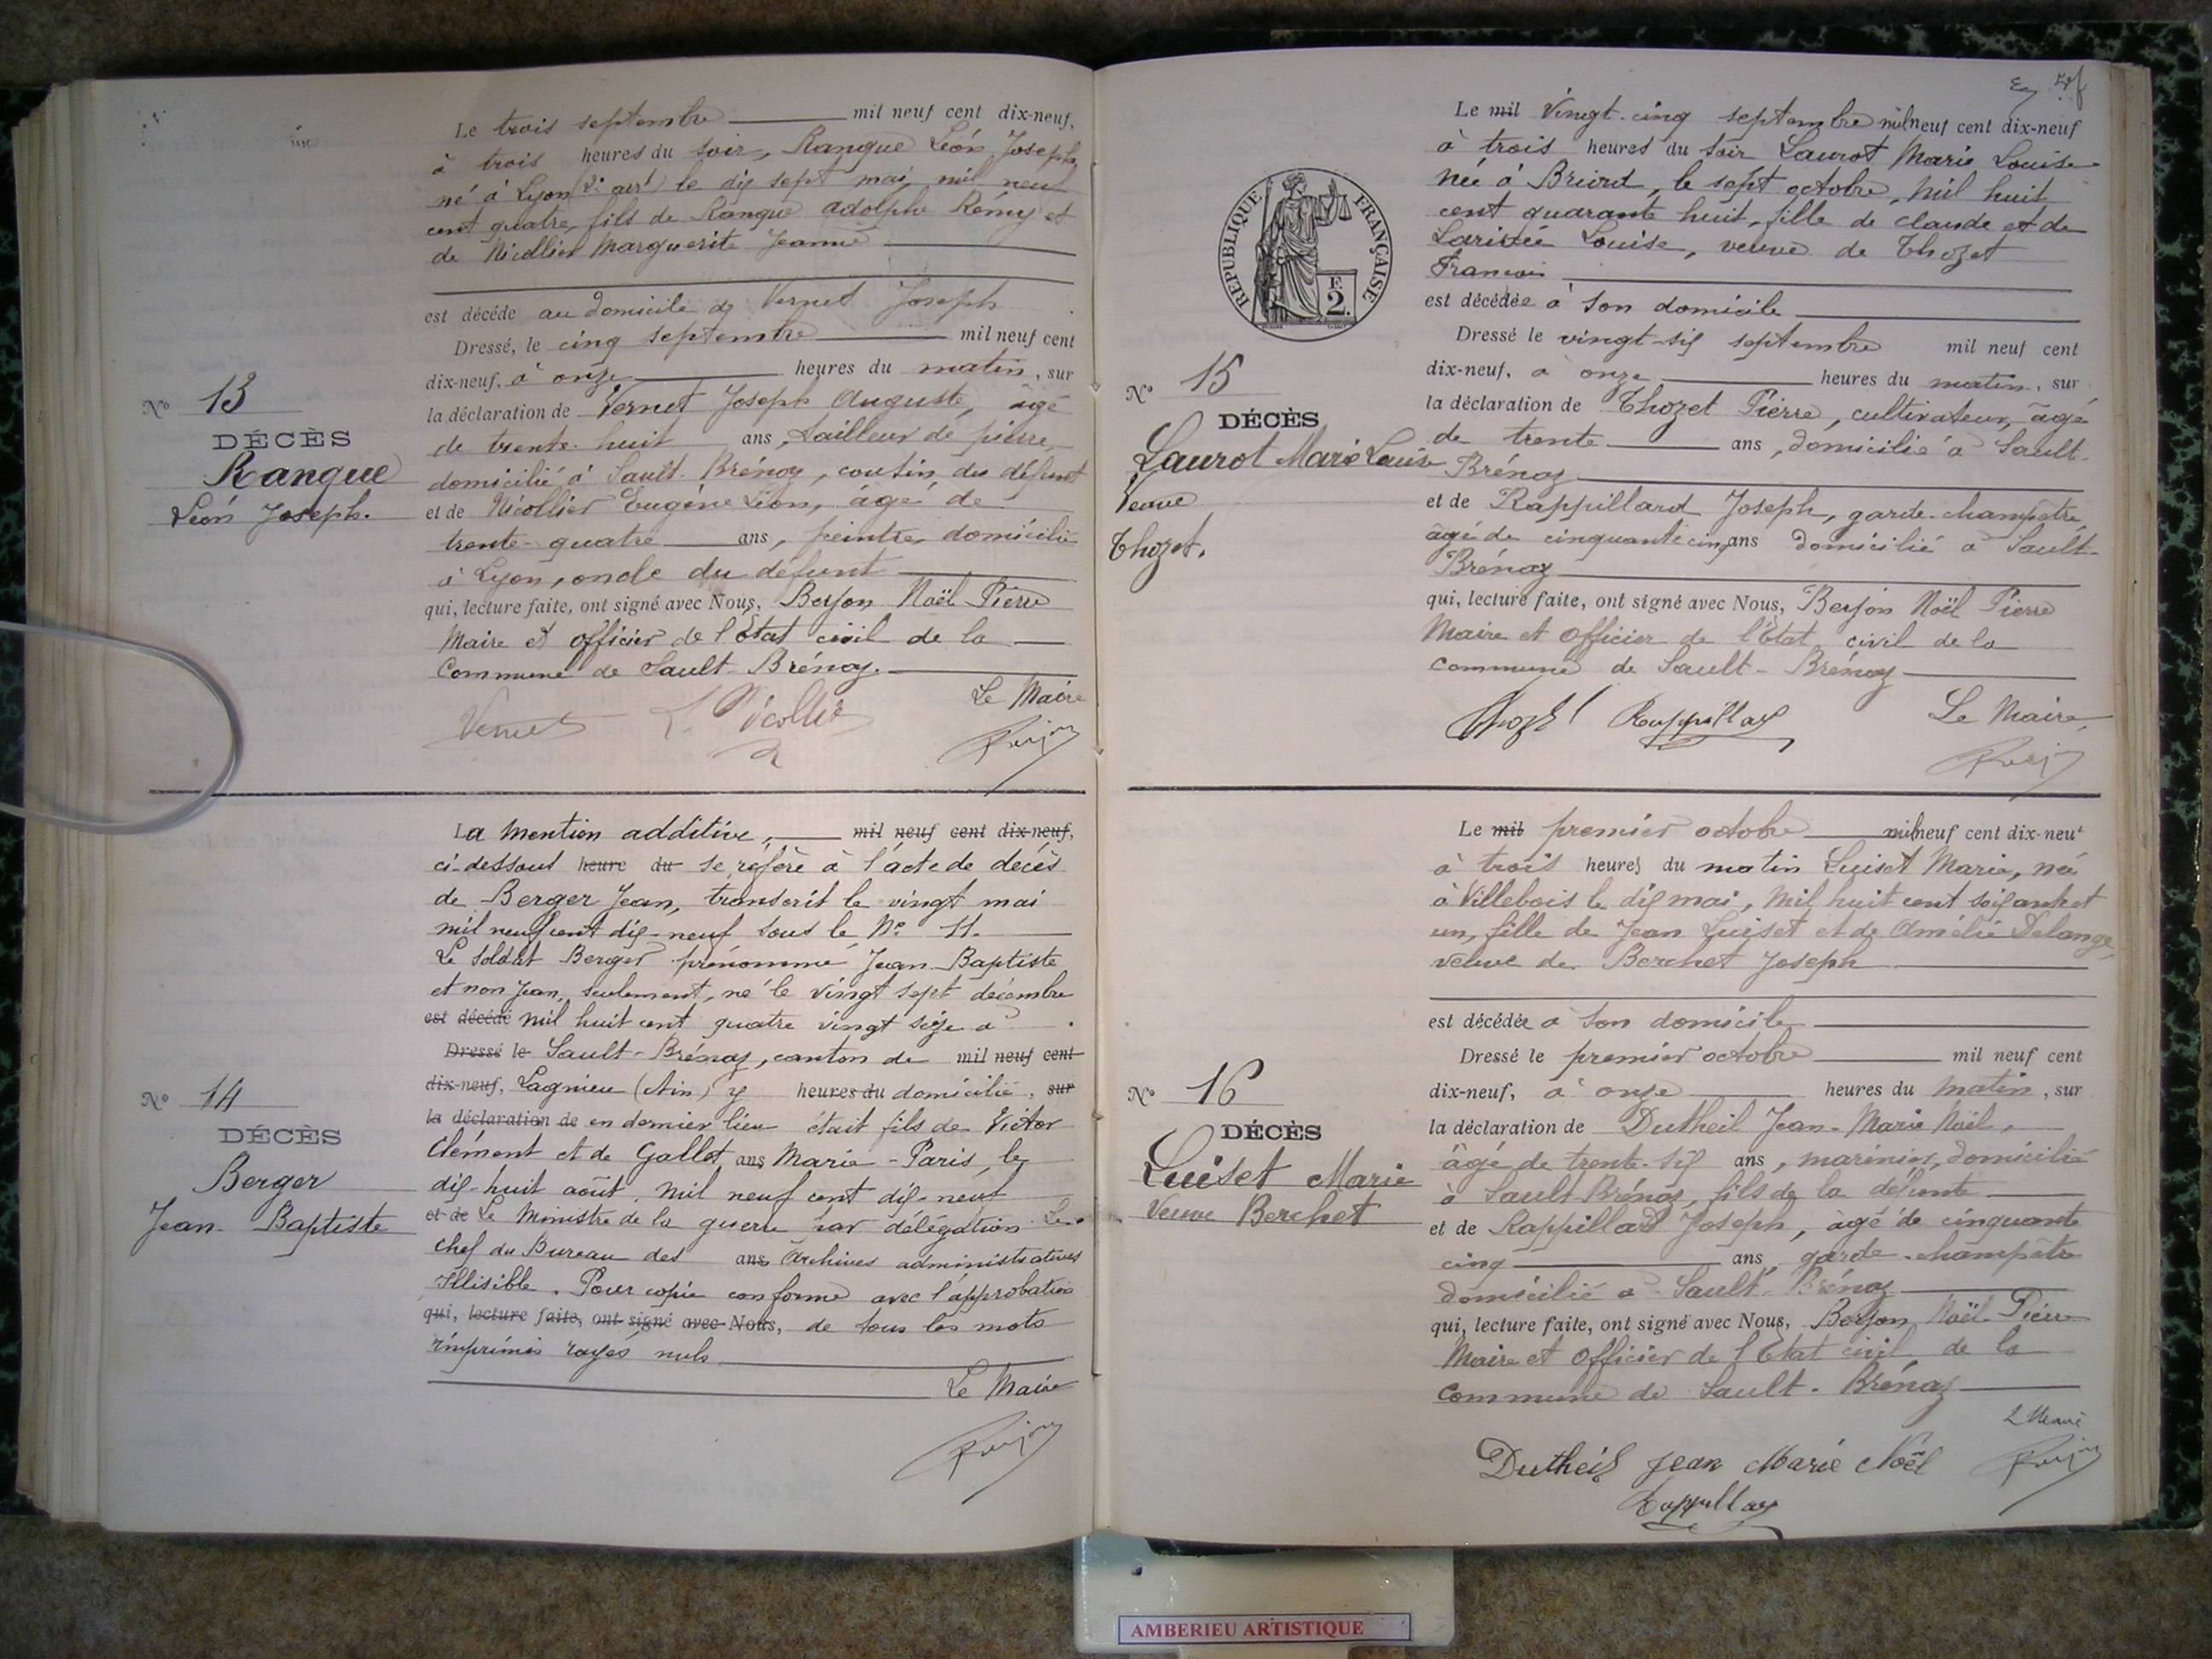 Le trois septembre mil neuf cent dix-neuf,
à trois heures du soir, Ranque Léon Joseph
né à Lyon (2e arrt) le dix sept mai mil neuf
cent quatre, fils de Ranque adolphe Rémy et
de Nicollier Marguerite Jeanne
est décédé au domicile de Vernet Joseph
Dressé, le cinq septembre mil neuf cent
dix-neuf, à onze heures du matin, sur
la déclaration de Vernet Joseph Auguste, âgé
de trente-huit ans, tailleur de pierre,
domicilié à Sault-Brénaz, cousin du défunt
et de Nicollier Eugène Léon, âgé de
trente-quatre ans, peintre, domicilié
à Lyon, oncle du défunt
qui, lecture faite, ont signé avec Nous, Berjon Noël Pierre
Maire et officier de l'État civil de la
Commune de Sault-Brénaz.
Le Maire
Vernet L. Nicollier Berjon
No 13
DÉCÈS
Ranque
Léon Joseph.
La mention additive, mil neuf cent dix-neuf,
ci-dessous heure du se réfère à l'acte de décès
de Berger Jean, transcrit le vingt mai
mil neuf cent dix-neuf sous le No 11.
Le soldat Berger prénommé Jean-Baptiste
et non Jean, seulement, né le vingt sept décembre
est décédé mil huit cent quatre vingt seize à
Dressé le Sault-Brénaz, canton de mil neuf cent
dix-neuf, Lagnieu (Ain) y heures du domicilié, sur
la déclaration de en dernier lieu était fils de Victor
Clément et de Gallet ans Marie - Paris, le
dix-huit août, mil neuf cent dix-neuf
et de Le Ministre de la guerre par délégation Le
chef du Bureau des ans Archives administratives
Illisible. Pour copie conforme avec l'approbation
qui, lecture faite, ont signé avec Nous, de tous les mots
imprimés rayés nuls
Le Maire
Berjon
No 14
DÉCÈS
Berger
Jean-Baptiste
Le mil Vingt-cinq septembre mil neuf cent dix-neuf
à trois heures du soir Laurot Marie Louise
née à Briord, le sept octobre, mil huit
cent quarante huit, fille de claude et de
Louise, veuve de Thozet
Francois
est décédée à son domicile
Dressé le vingt-six septembre mil neuf cent
dix-neuf, à onze heures du matin, sur
la déclaration de Thozet Pierre, cultivateur, âgé
de trente ans, domicilié à Sault-
Brénaz
et de Rappillard Joseph, garde-champêtre,
âgé de cinquante cinq ans domicilié à Sault-
Brénaz
qui, lecture faite, ont signé avec Nous, Berjon Noël Pierre
Maire et officier de l'État civil de la
commune de Sault-Brénaz
Le Maire
Thozet Rappillard Berjon
REPUBLIQUE FRANÇAISE
2F.
No 15
DÉCÈS
Laurot Marie Louise
Veuve
Thozet.
Le mil premier octobre mil neuf cent dix-neuf
à trois heures du matin Luiset Marie, née
à Villebois le dix mai, mil huit cent soixante et
un, fille de Jean Luiset et de Amélie Delange,
veuve de Berchet Joseph
est décédée à son domicile
Dressé le premier octobre mil neuf cent
dix-neuf, à onze heures du matin, sur
la déclaration de Dutheil Jean-Marie Noël,
âgé de trente-six ans, marinier, domicilié
à Sault-Brénaz, fils de la défunte
et de Rappillard Joseph, âgé de cinquante
cinq ans, garde-champêtre
domicilié à Sault-Brénaz
qui, lecture faite, ont signé avec Nous, Berjon Noël Pierre
Maire et officier de l'État civil de la
commune de Sault-Brénaz
Le Maire
Dutheil Jean Marie Noël Berjon
Rappillard
No 16
DÉCÈS
Luiset Marie
Veuve Berchet
AMBERIEU ARTISTIQUE